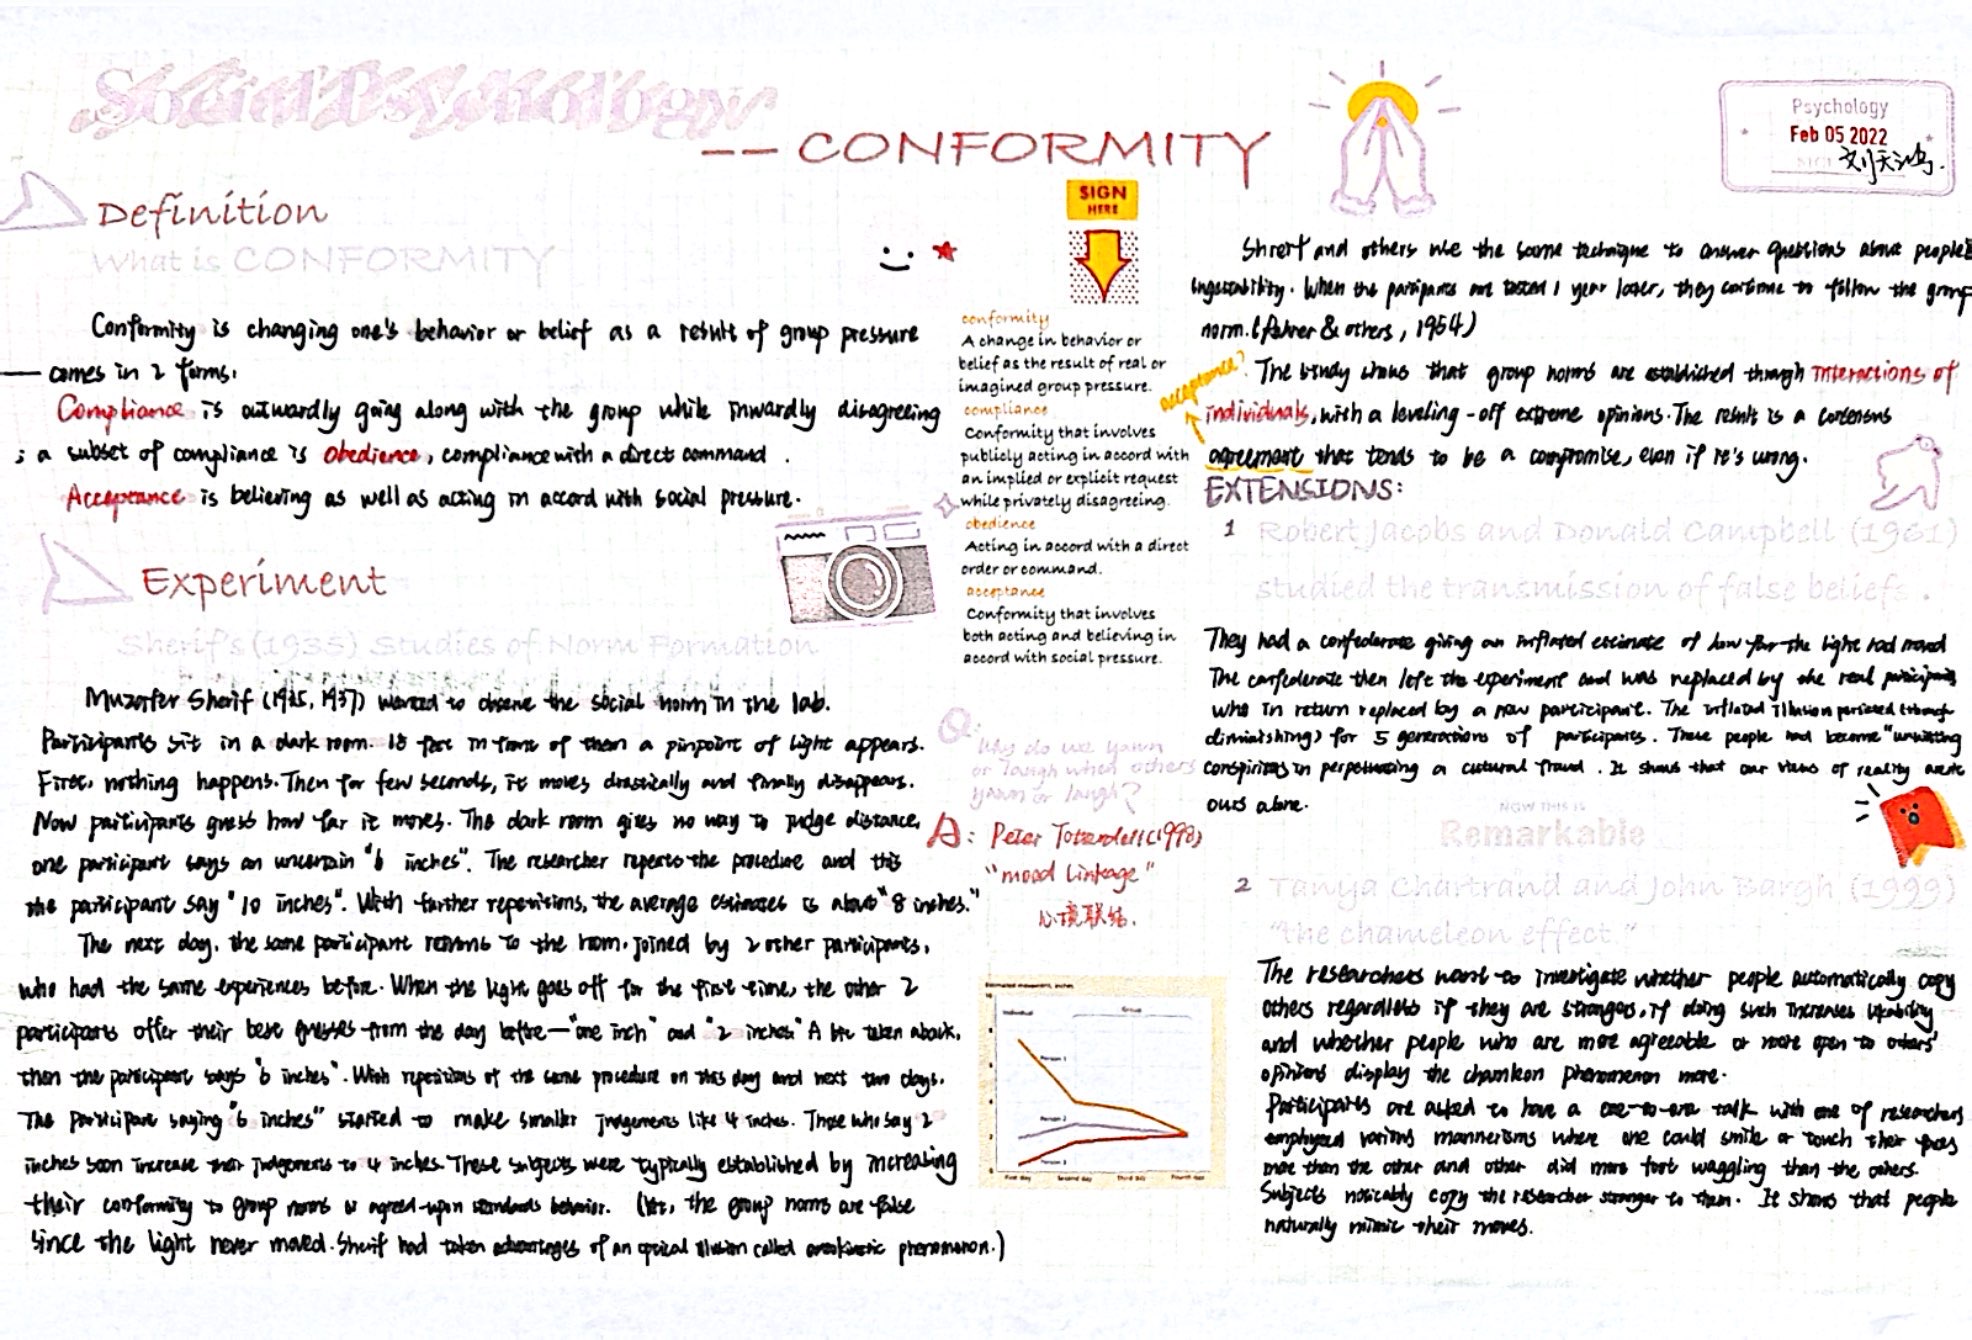 Social Psychology
-- CONFORMITY
Psychology
Feb 05 2022
刘天鸿.
Definition
What is CONFORMITY
Conformity is changing one's behavior or belief as a result of group pressure
— comes in 2 forms.
Compliance is outwardly going along with the group while inwardly disagreeing
; a subset of compliance is obedience, compliance with a direct command.
Acceptance is believing as well as acting in accord with social pressure.
Experiment
Sherif's (1935) Studies of Norm Formation
Muzafer Sherif (1935, 1937) wanted to observe the social norm in the lab.
Participants sit in a dark room. 15 feet in front of them a pinpoint of light appears.
First, nothing happens. Then for few seconds, it moves drastically and finally disappears.
Now participants guess how far it moves. The dark room gives no way to judge distance,
one participant says an uncertain "6 inches". The researcher repeats the procedure and this
the participant say "10 inches". With further repetitions, the average estimates is about "8 inches."
The next day, the same participant returns to the room, joined by 2 other participants,
who had the same experiences before. When the light goes off for the first time, the other 2
participants offer their best guesses from the day before — "one inch" and "2 inches" A bit taken aback,
then the participant says "6 inches". With repetitions of the same procedure on this day and next two days.
The participant saying "6 inches" started to make smaller judgements like 4 inches. Those who say 2
inches soon increase their judgements to 4 inches. These subjects were typically established by increasing
their conformity to group norms or agreed-upon standards behavior. (Yet, the group norms are false
since the light never moved. Sherif had taken advantages of an optical illusion called autokinetic phenomenon.)
SIGN
HERE
conformity
A change in behavior or
belief as the result of real or
imagined group pressure.
compliance
Conformity that involves
publicly acting in accord with
an implied or explicit request
while privately disagreeing.
obedience
Acting in accord with a direct
order or command.
acceptance
Conformity that involves
both acting and believing in
accord with social pressure.
Q:
Why do we yawn
or laugh when others
yawn or laugh?
A: Peter Totterdell (1998)
"mood linkage"
心境联结.
Estimated movement, inches
Individual
Group
Person 1
Person 2
Person 3
First day
Second day
Third day
Fourth day
Sherif and others use the same technique to answer questions about people's
suggestibility. When the participants are tested 1 year later, they continue to follow the group
norm. (Rohrer & others, 1954)
acceptance?
The study shows that group norms are established through interactions of
individuals, with a leveling-off extreme opinions. The result is a consensus
agreement that tends to be a compromise, even if it's wrong.
EXTENSIONS:
1 Robert Jacobs and Donald Campbell (1961)
studied the transmission of false beliefs.
They had a confederate giving an inflated estimate of how far the light had moved
The confederate then left the experiment and was replaced by the real participants
who in return replaced by a new participant. The inflated illusion persisted (though
diminishing) for 5 generations of participants. These people had become "unwitting
conspirators in perpetuating a cultural fraud. It shows that our views of reality aren't
ours alone.
NOW THIS IS
Remarkable
2 Tanya Chartrand and John Bargh (1999)
"the chameleon effect"
The researchers want to investigate whether people automatically copy
others regardless if they are strangers, if doing such increases likability
and whether people who are more agreeable or more open to others'
opinions display the chameleon phenomenon more.
Participants are asked to have a one-to-one talk with one of researchers
employed various mannerisms where one could smile or touch their faces
more than the other and other did more foot waggling than the others.
Subjects noticably copy the researcher stranger to them. It shows that people
naturally mimic their moves.